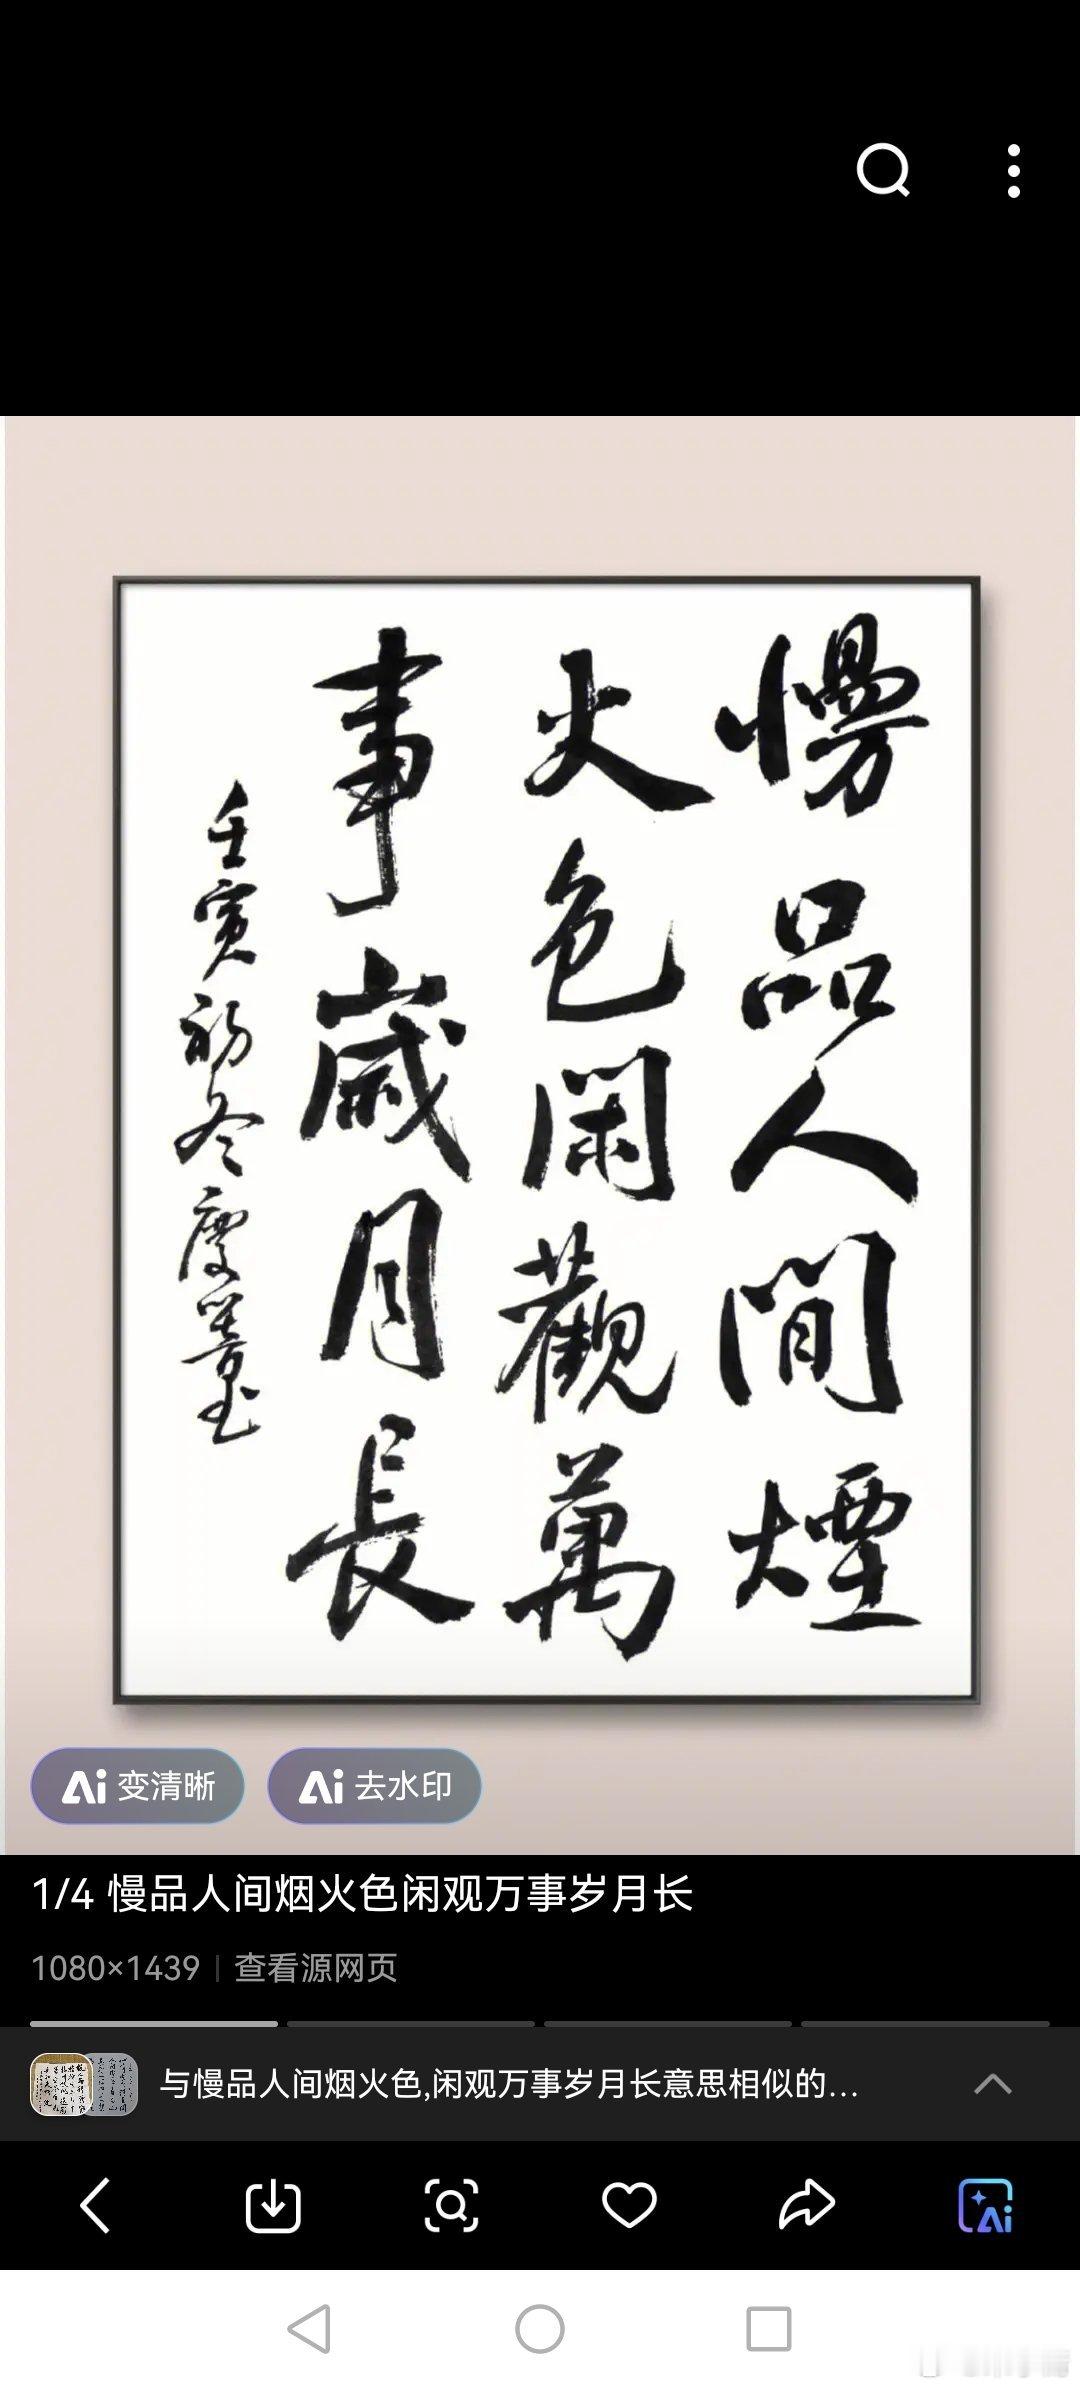 慢品人間煙
火色閑觀萬
事歲月長
壬寅初冬慶
Ai 变清晰
Ai 去水印
1/4 慢品人间烟火色闲观万事岁月长
1080×1439 | 查看源网页
与慢品人间烟火色,闲观万事岁月长意思相似的...
Ai